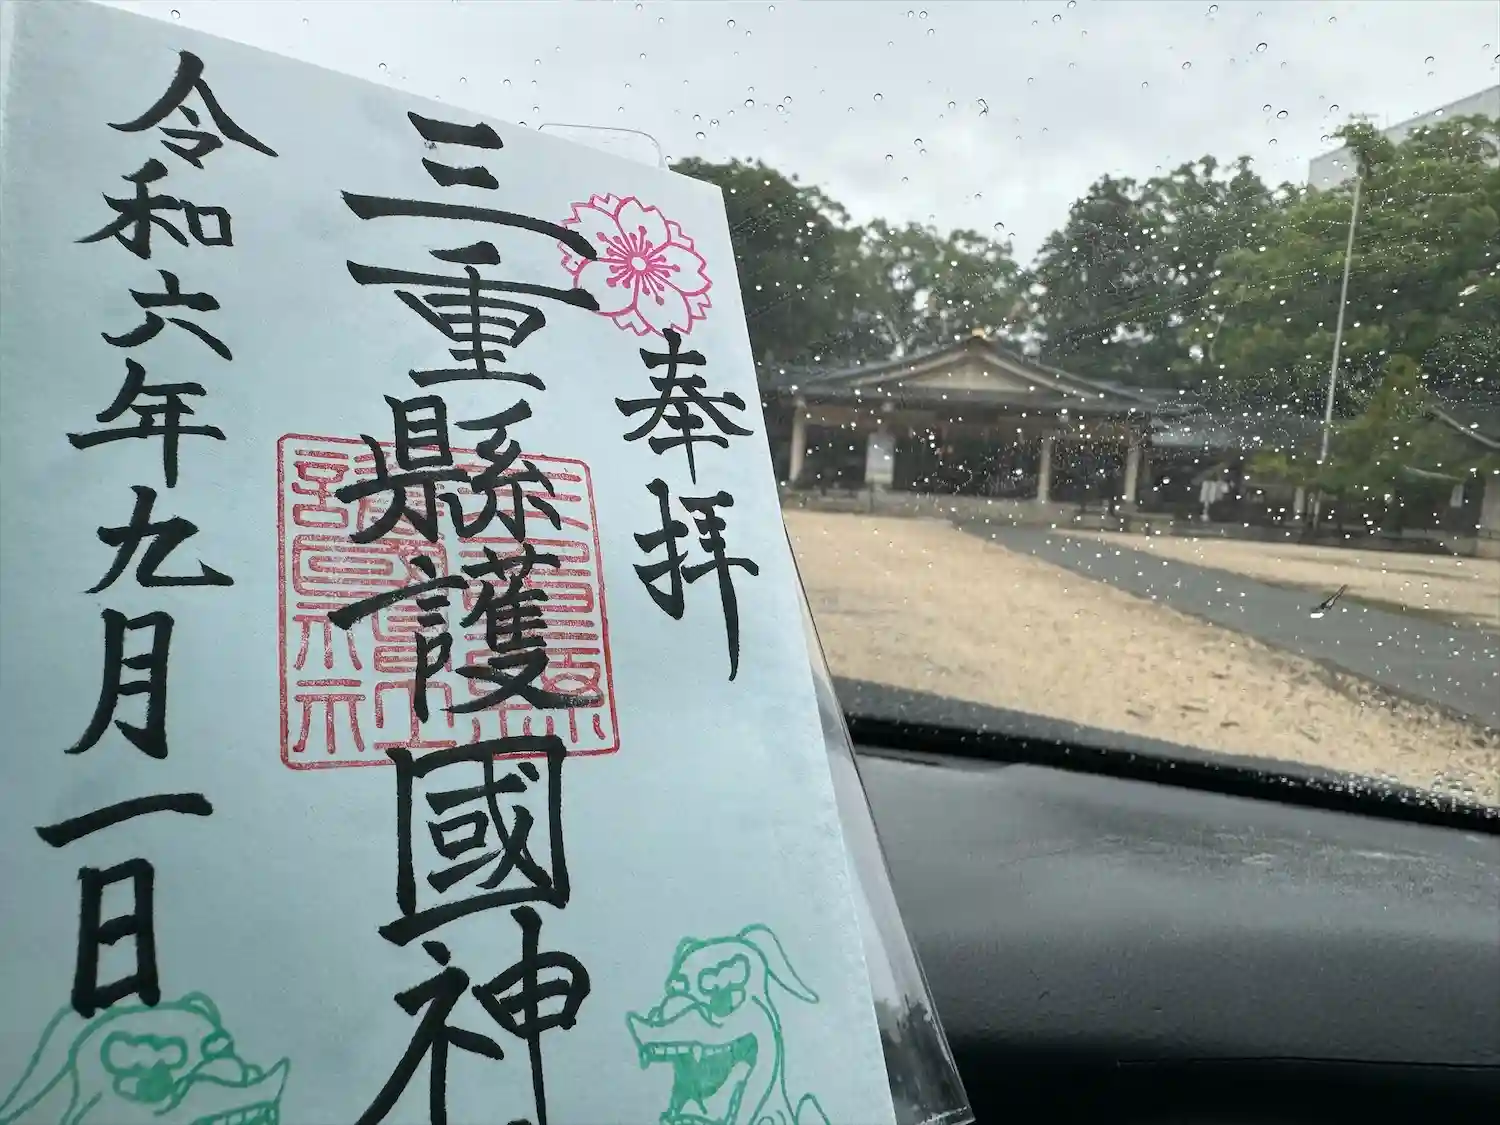 奉拝
三重縣護國神
令和六年九月一日